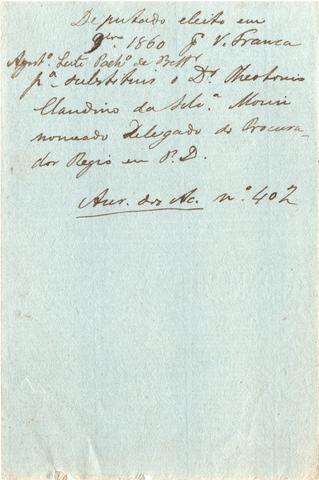 Deputado eleito em
9bro 1860 p V. Franca
Agostº. Leite Pachº. de Bettª.
pª. substituir o Dr. Theotonio
Claudino da Silvª. Moniz
nomeado Delegado do Procura-
dor Regio em P. D.
Aur. dos Ac. nº. 402